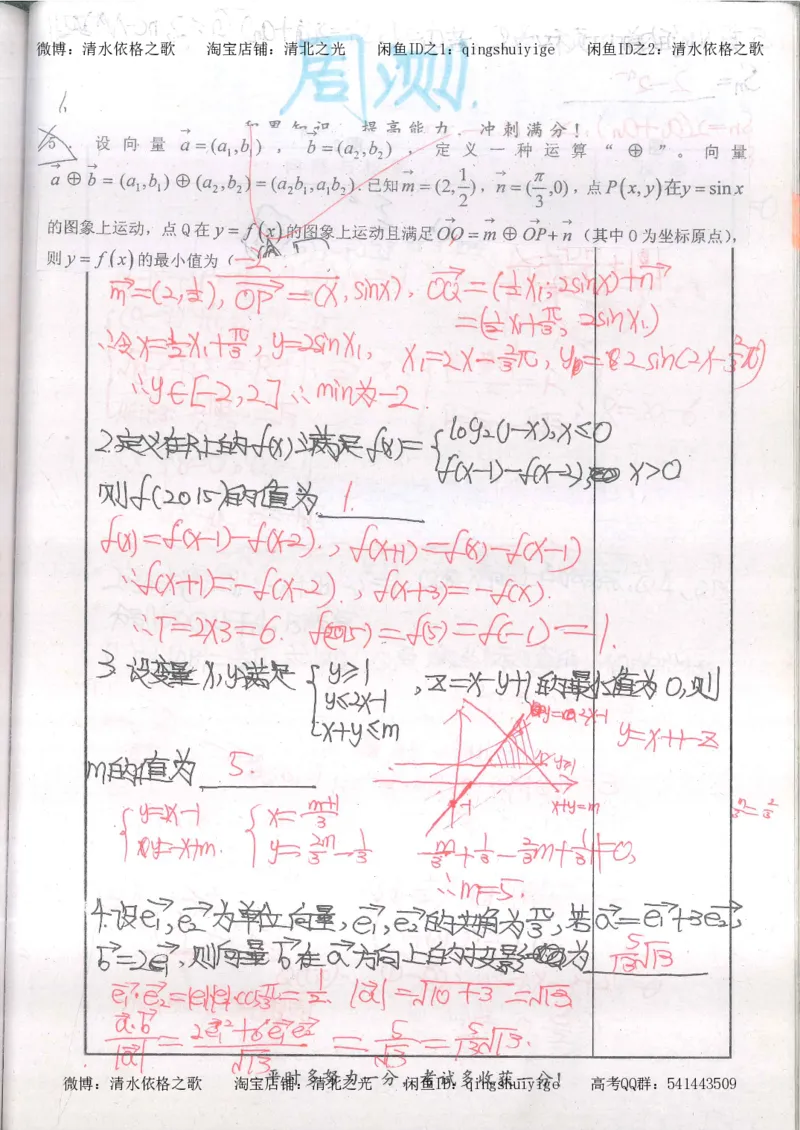 微博：清水依格之歌 淘宝店铺：清北之光 闲鱼ID之1：qingshuiyige 闲鱼ID之2：清水依格之歌
周测.
1.
提高能力，冲刺满分！
5. 设向量 a→=(a₁,b₁)，b→=(a₂,b₂)，定义一种运算“⊕”。向量
a→⊕b→=(a₁,b₁)⊕(a₂,b₂)=(a₂b₁,a₁b₂).已知m→=(2,1/2)，n→=(π/3,0)，点P(x,y)在y=sinx
的图象上运动，点Q在y=f(x)的图象上运动且满足OQ→=m→⊕OP→+n→（其中O为坐标原点），
则y=f(x)的最小值为（ -2
m→=(2,1/2), OP→=(x,sinx), OQ→=(1/2x₁, 2sinx)+n→
=(1/2x₁+π/3, 2sinx₁)
∴令x=1/2x₁+π/3, y=2sinx₁, x₁=2x-2/3π, y=2sin(2x-2/3π)
∴y∈[-2,2] ∴min为-2.
2.定义在R上的f(x)满足f(x)={log₂(1-x), x≤0
f(x-1)-f(x-2), x>0
则f(2015)的值为 1.
f(x)=f(x-1)-f(x-2)., f(x+1)=f(x)-f(x-1)
∴f(x+1)=-f(x-2)., f(x+3)=-f(x).
∴T=2×3=6. f(2015)=f(5)=f(-1)=1.
3 设变量x,y满足{y≥1
y≤2x-1
x+y≤m
,z=x-y+1的最小值为0,则
y=2x-1
y=x+1-z
m的值为 5.
y≥1
-1
x+y=m
{y=2x-1
y=-x+m.
{x=(m+1)/3
y=2m/3-1/3
m/3+1/3-2/3m+1/3+1=0,
m/3=2/3
∴m=5.
4.设e₁→,e₂→为单位向量,e₁→,e₂→的夹角为π/3,若a→=e₁→+3e₂→,
b→=2e₁→,则向量b→在a→方向上的投影为 5/13√13
e₁→·e₂→=|e₁||e₂|·cosπ/3=1/2. |a→|=√(10+3)=√13
a→·b→/|a→|=(2e₁→²+6e₁→e₂→)/√13=5/√13=5/13√13.
平时多努力一分，考试多收获一分！
微博：清水依格之歌 淘宝店铺：清北之光 闲鱼ID：qingshuiyige 高考QQ群：541443509